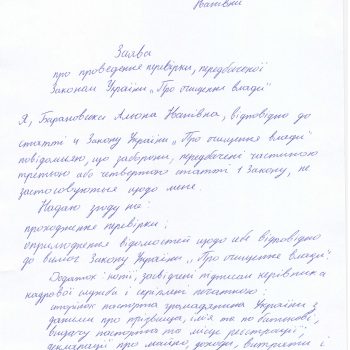 Іванівни
Заява
про проведення перевірки, передбаченої
Законом України „Про очищення влади"
Я, Барановська Альона Іванівна, відповідно до
статті 4 Закону України „Про очищення влади"
повідомляю, що заборони, передбачені частиною
третьою або четвертою статті 1 Закону, не
застосовуються щодо мене.
Надаю згоду на:
проходження перевірки;
оприлюднення відомостей щодо себе відповідно
до вимог Закону України „Про очищення влади".
Додаток: копії, засвідчені підписом керівника
кадрової служби і скріплені печаткою:
сторінок паспорта громадянина України з
даними про прізвище, ім'я та по батькові,
видачу паспорта та місце реєстрації;
декларації про майно, доходи, витрати і